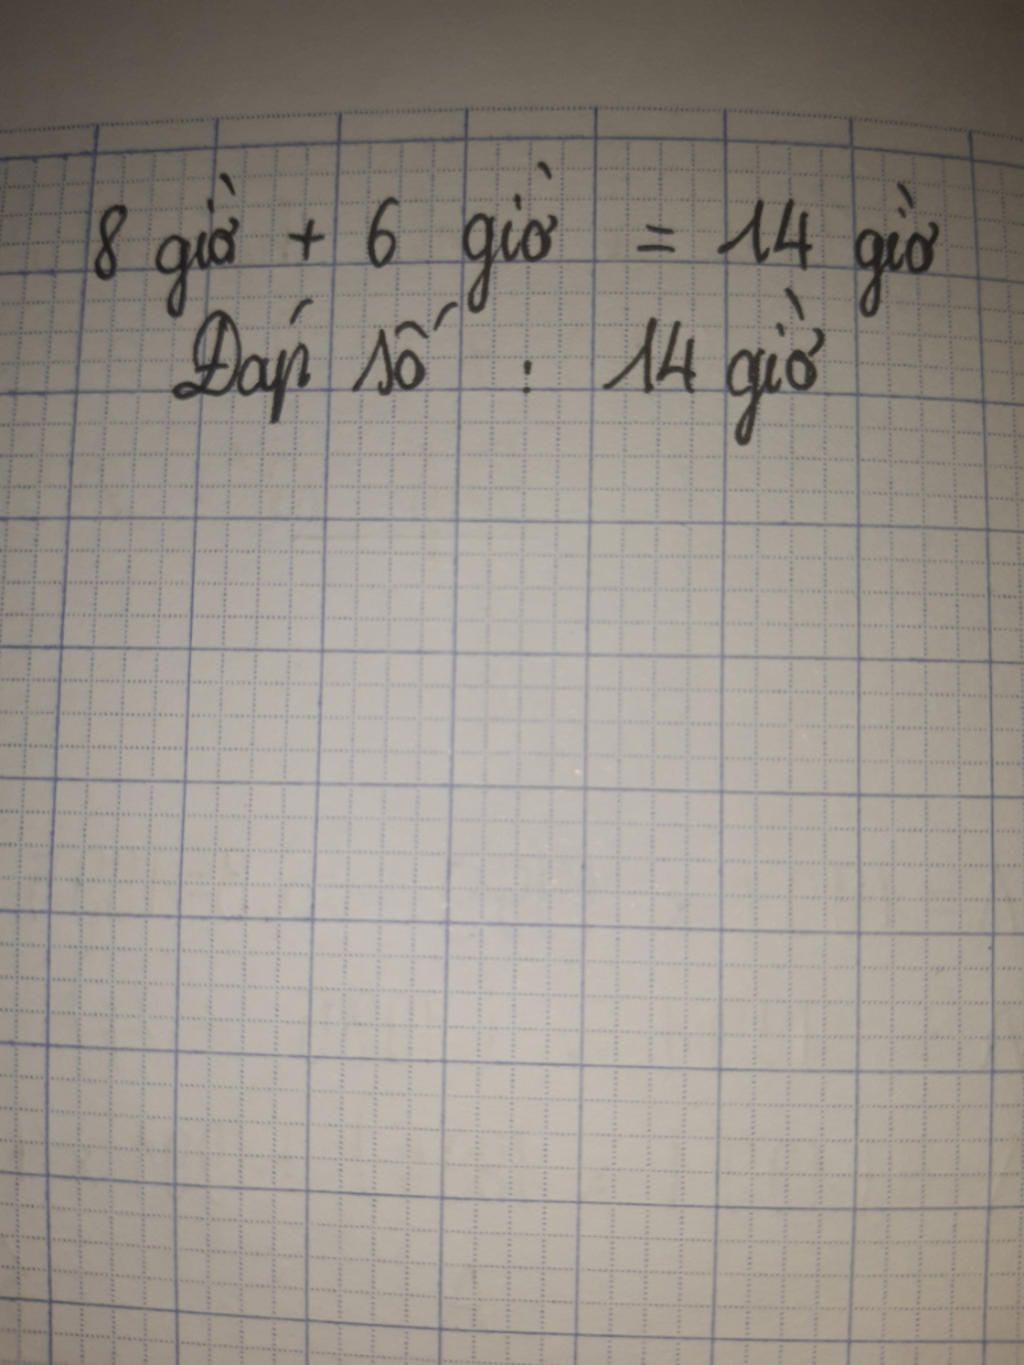 8 giờ + 6 giờ = 14 giờ
Đáp số : 14 giờ